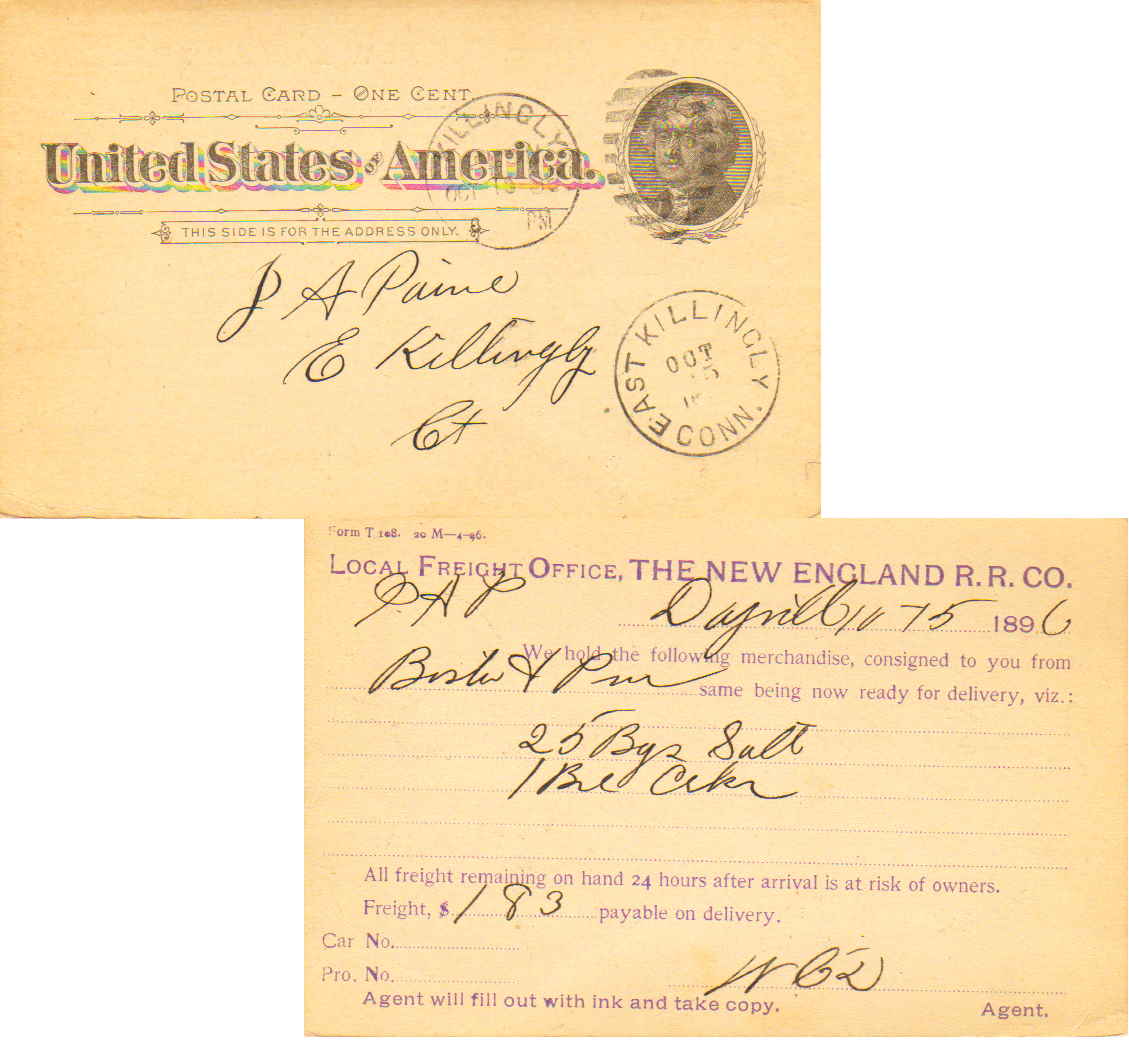 POSTAL CARD – ONE CENT
United States OF America.
THIS SIDE IS FOR THE ADDRESS ONLY.
KILLINGLY
OCT
PM
J A Paine
E Killingly
Ct
EAST KILLINGLY CONN.
OCT
15
Form T 108. 20 M—4-96.
LOCAL FREIGHT OFFICE, THE NEW ENGLAND R. R. CO.
J. A P
10 15 1896
We hold the following merchandise, consigned to you from
Boston & same being now ready for delivery, viz.:
25 Bgs Salt
1 Bbl
All freight remaining on hand 24 hours after arrival is at risk of owners.
Freight, $ 1 83 payable on delivery.
Car No.
Pro. No.
Agent will fill out with ink and take copy. Agent.